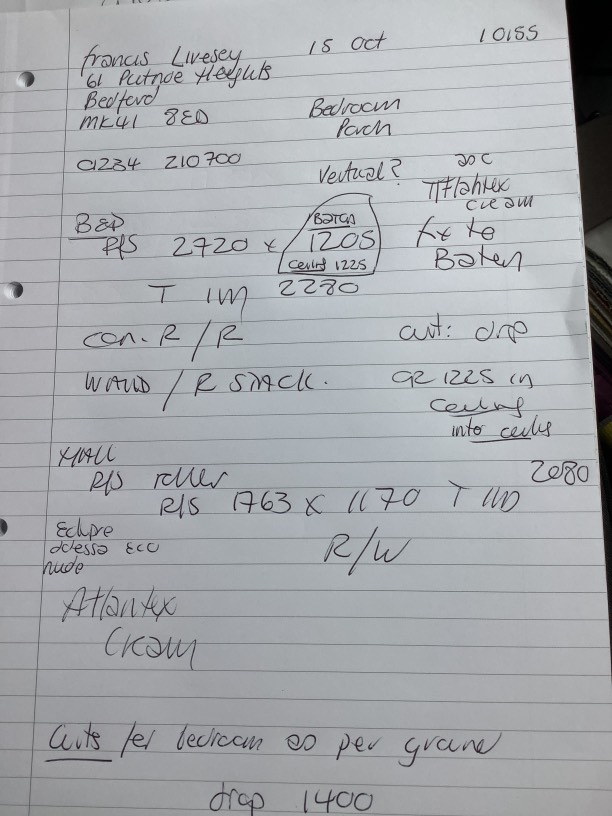 Francis Livesey 15 Oct 10155
61 Putnoe Heights
Bedford
MK41 8ED
Bedroom
Porch
01234 210700
Vertual? 20C
Atlantex
cream
fix to
Baten
BED
R/S 2720 x 1205
BATEN
Ceiling 1225
T IM 2280
con. R / R
WAUD / R STACK.
cut: drop
or 1225 in
Ceiling
into ceiling
HALL
R/S roller
R/S 1763 x 1170 T IM 2080
Eclipse
odessa Eco
nude
R/W
Atlantex
Cream
cuts for bedroom as per graine
drop 1400